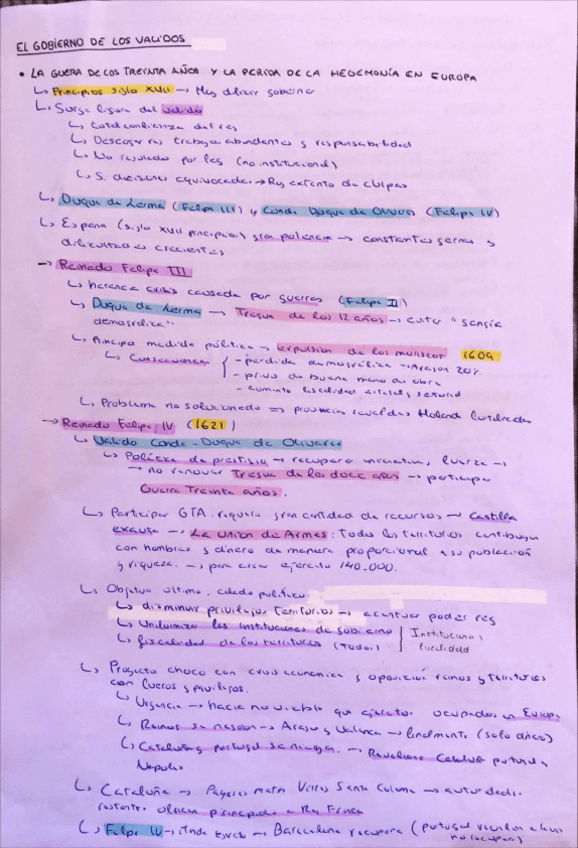 EL GOBIERNO DE LOS VALIDOS
• LA GUERA DE LOS TREINTA AÑOS Y LA PERIDA DE LA HEDEMONÍA EN EUROPA
↳ Principios siglo XVII → Muy dificil gobernar
↳ Surge figura del valido
↳ total confianza del rey
↳ Descarga rey trabajo abundante y responsabilidad
↳ No regulado por ley (no institucional)
↳ Si decisiones equivocadas → Rey exento de culpas
↳ Duque de Lerma (Felipe III) y Conde Duque de Olivares (Felipe IV)
↳ España (siglo XVII principios) gran potencia → constantes guerras y
dificultades crecientes
→ Reinado Felipe III
↳ herencia crisis causada por guerras (Felipe II)
↳ Duque de Lerma → Tregua de los 12 años → evitar "sangía
demografica"
↳ Principal medida política → expulsión de los moriscos 1609
↳ Consecuencias - perdida demográfica → Aragon 20%
- privo de buena mano de obra
- aumento
↳ Problema no solucionado ⇒ provincias rebeldes Holanda
→ Reinado Felipe IV (1621)
↳ Valido Conde-Duque de Olivares
↳ Política de prestigio → recuperar iniciativa, fuerza →
→ no renovar Tregua de los doce años → participar
Guerra Treinta años.
↳ Participar GTA requería gran cantidad de recursos → Castilla
exausta → La Union de Armas: Todos los territorios contribuyan
con hombres y dinero de manera proporcional a su población
y riqueza. → para crear ejercito 140.000.
↳ Objetivo ultimo, calado político:
↳ disminuir privilegios territorios → acentuar poder rey
↳ Uniformizar las instituciones de gobierno
↳ fiscalidad de los territorios (todos) Instituciones y fiscalidad
↳ Proyecto choco con crisis economica y oposición reinos y territorios
con fueros y privilegios.
↳ Urgencia → hacia no viable que ejercitos ocupados en Europa
↳ Reinos se negaron → Aragon y Valencia → finalmente (solo dinero)
↳ Cataluña y portugal se niegan → Rebeliones Cataluña portugal y
Napoles
↳ Cataluña → Pageses matan Virrey Santa Coloma → autoridades
ofrecen principado a Rey Francia
↳ Felipe IV → manda ejercito → Barcelona recupera (portugal
no recupera)